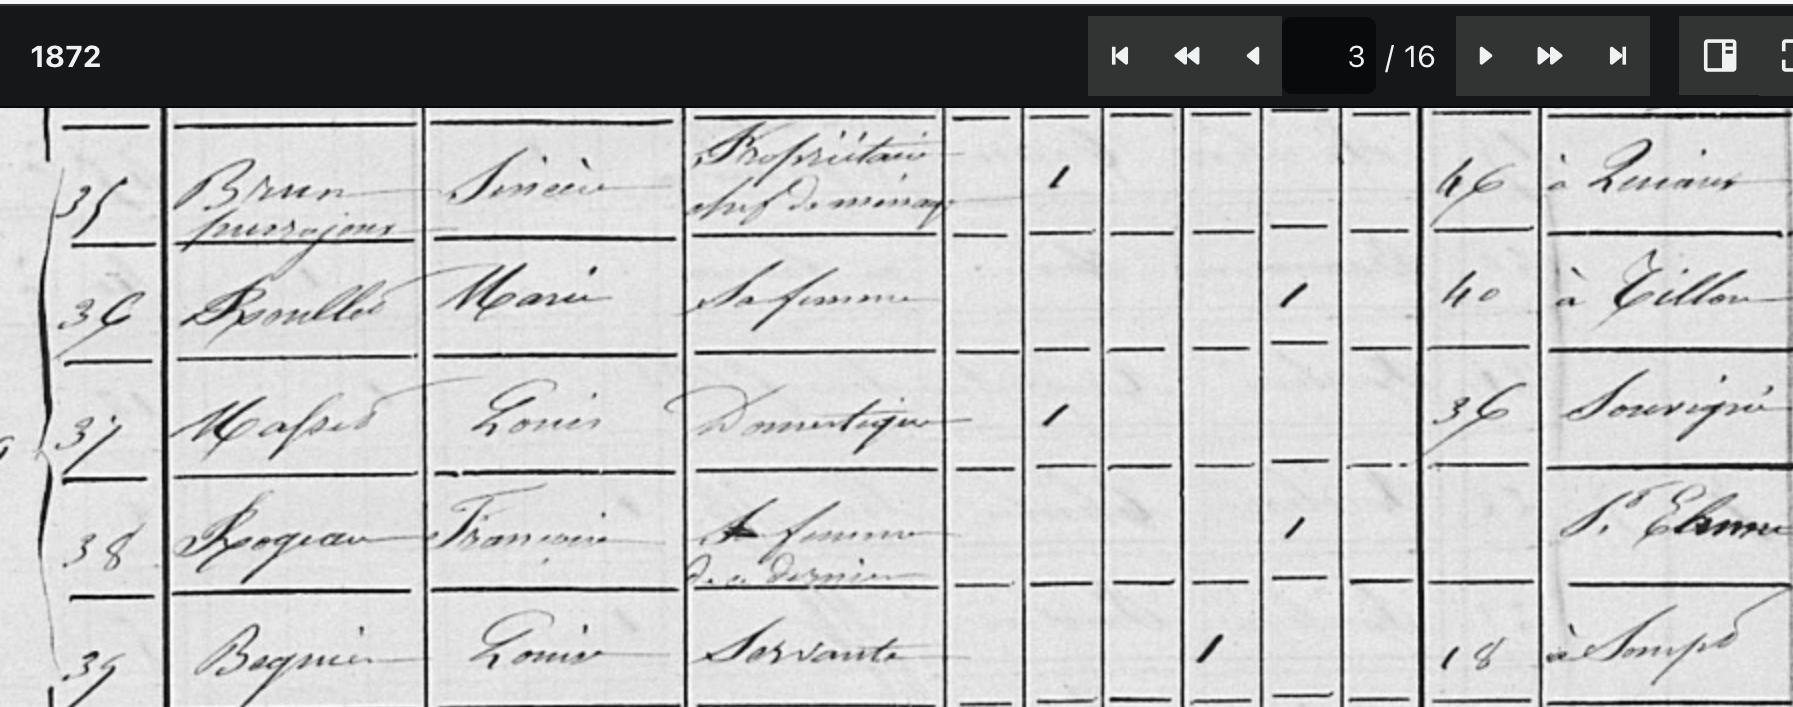 1872
3 / 16
Propriétaire
35 Brun Sincère chef de ménage 1 46 à
36 Marie Sa femme 1 40 à Tillou
37 Louis Domestique 1 36 Souvigné
38 Rogeau Françoise femme 1 St
de ce dernier
39 Begnier Louise Servante 1 18 à Sompt